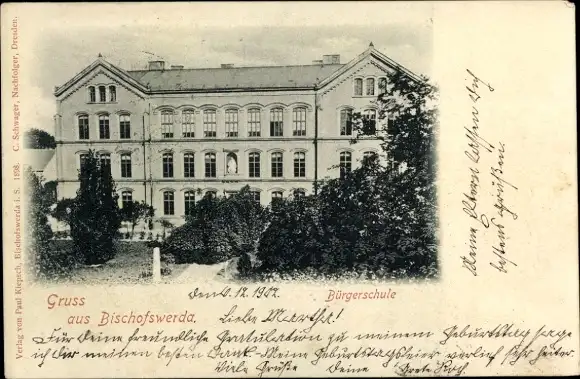 Verlag von Paul Klepsch, Bischofswerda i. S. 1898. C. Schwager, Nachfolger, Dresden.
Gruss
aus Bischofswerda.
Bürgerschule
den 12. 1902
Liebe Martha!
Für Deine freundliche Gratulation zu meinem Geburtstag sage
ich Dir meinen besten Dank. Meine Geburtstagsfeier verlief sehr heiter.
Viele Grüße Deine Grete
Meine Eltern lassen Dich
bestens grüßen.